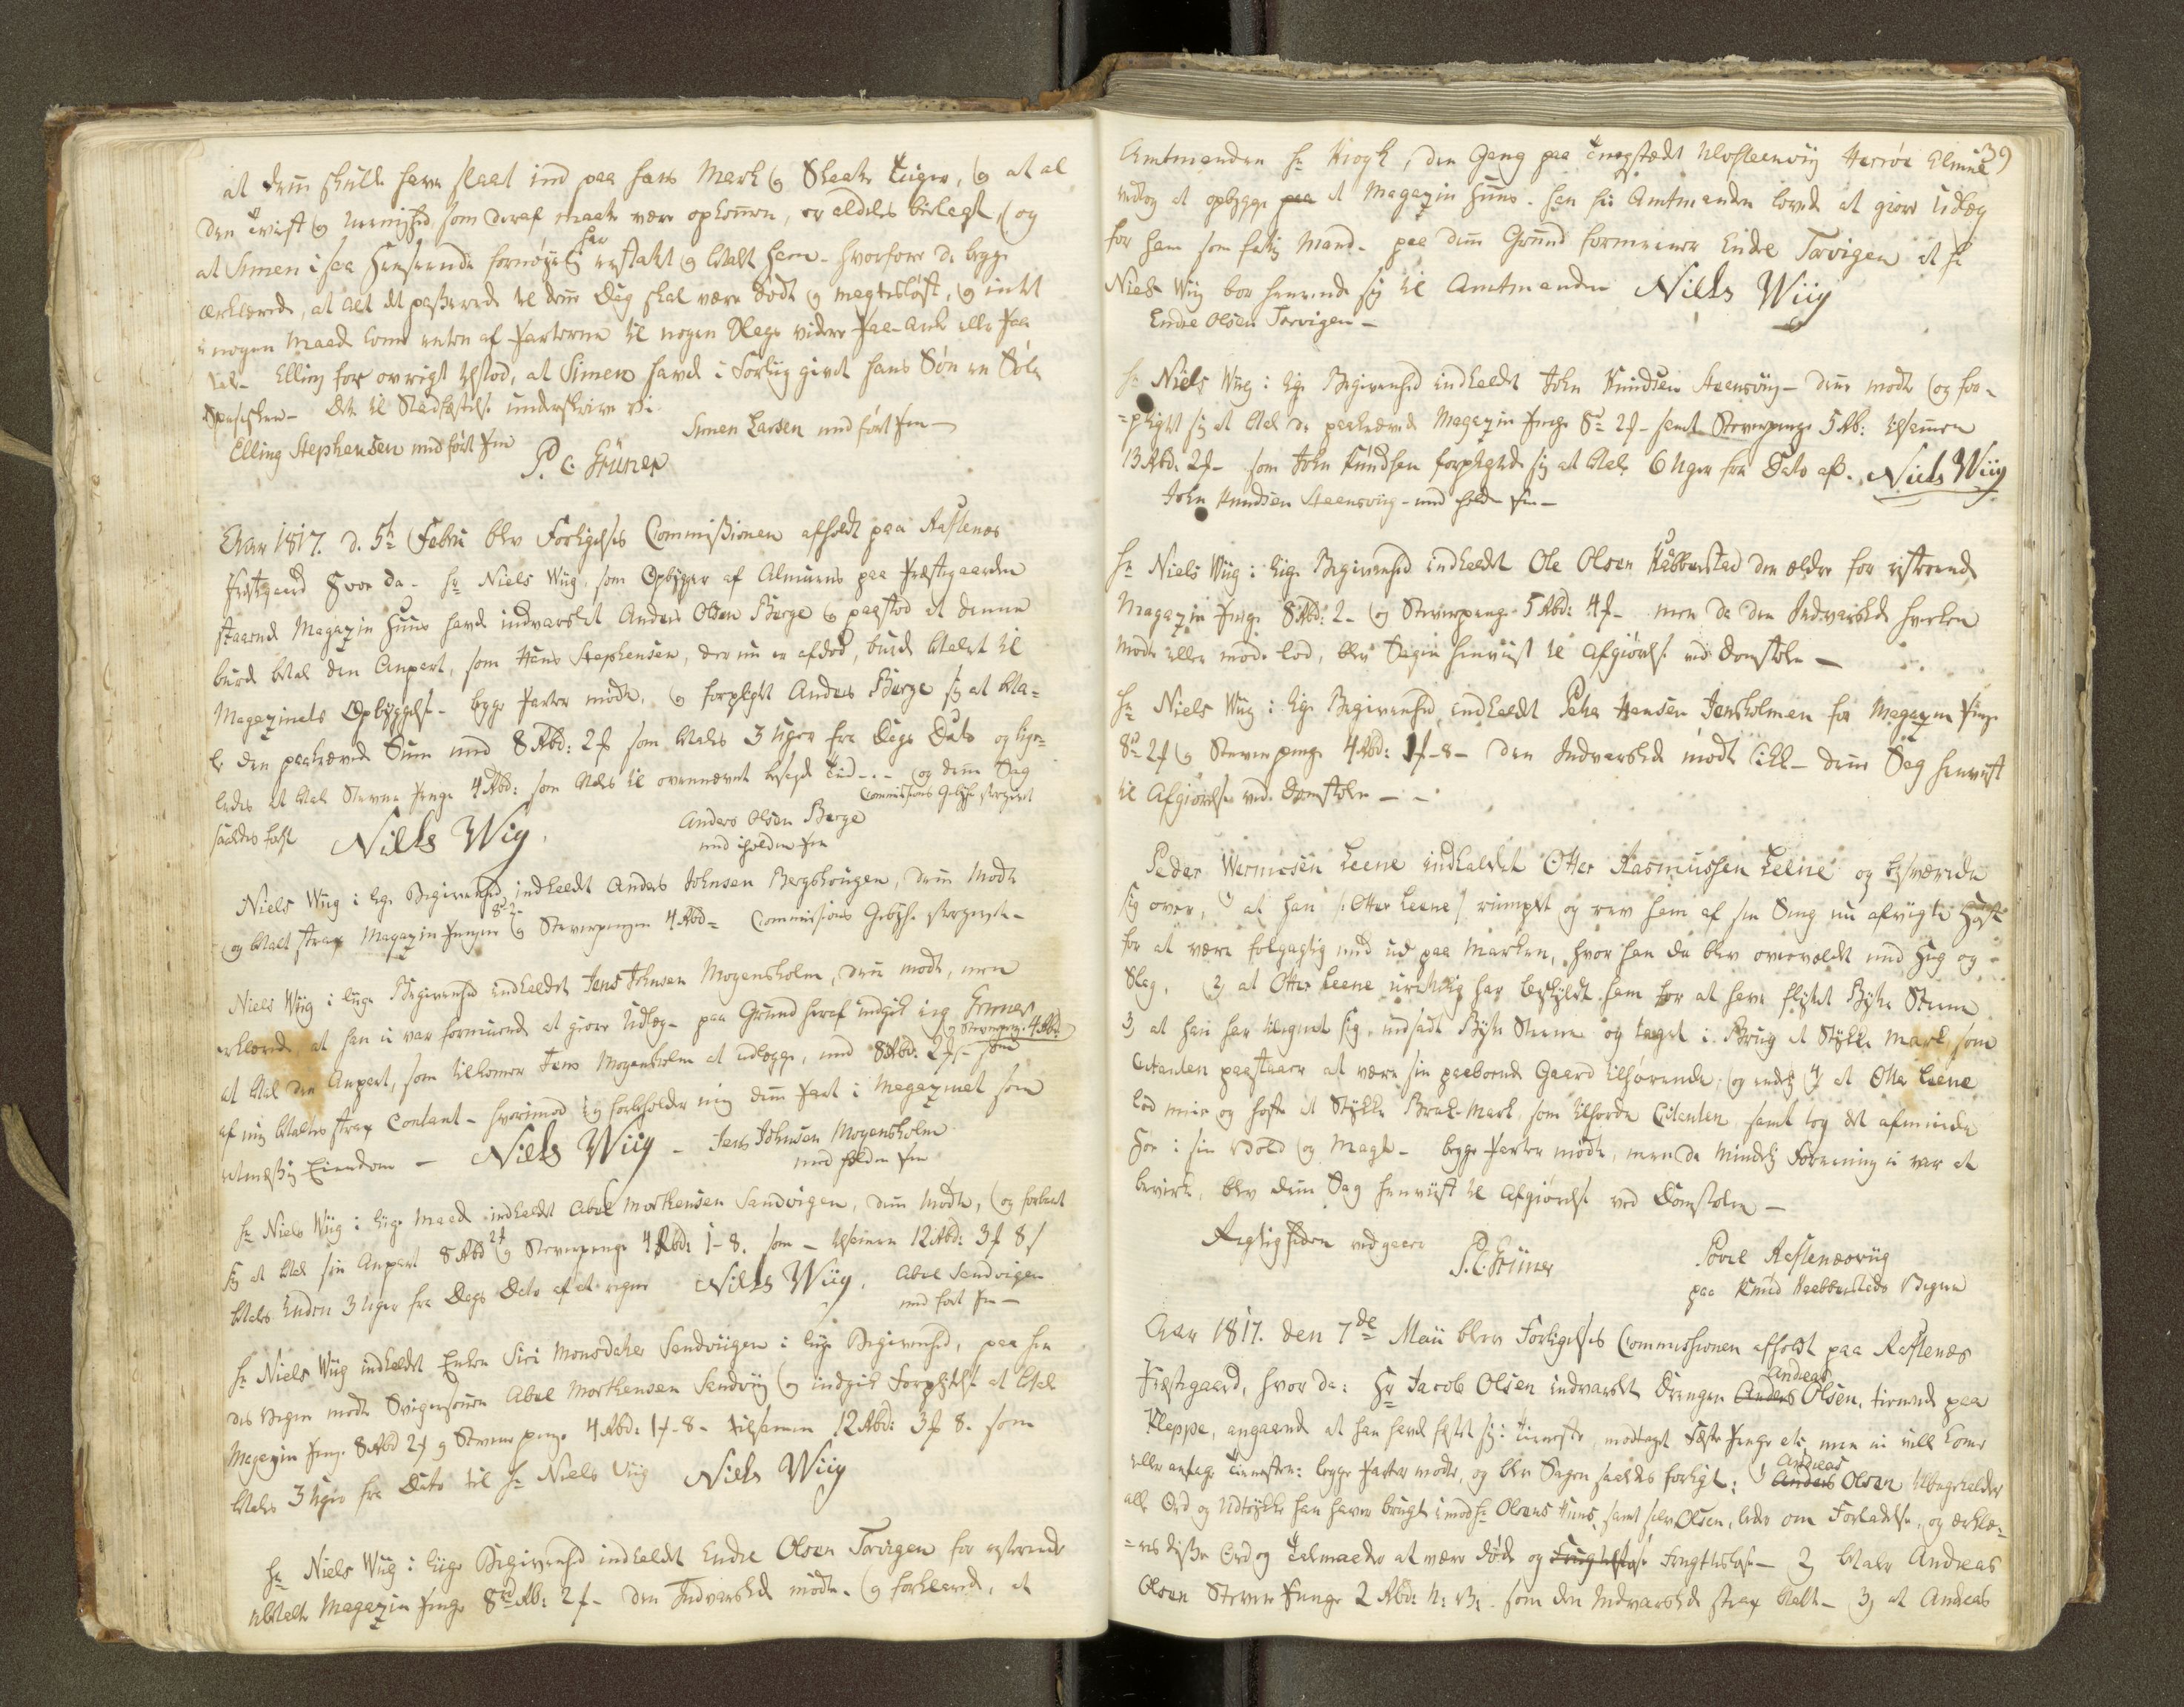 at denne skulle have slaaet ind paa hans Mark og Skaaret Tuger, og at al
den Tvist og Uenighed som deraf maatte være opkommen, er aldeles bielagt, og
at Simen i saa Henseende fornøyelig har erstattet og betalt ham. hvorfore de begge
ærklærede, at alt det passerede til denne Dag skal være dødt og magtesløst, og intet
i nogen Maade komme enten af Parterne til nogen Klage videre Paa-Anke eller Paa
tale. Elling for øvrigt tilstod, at Simen havde i Forlig givet hans Søn en Sølv
Speseskee. Dette til Stadfæstelse underskrive vi
Simen Larsen med ført Pen
Elling Stephensen med ført Pen P. C. Grüner
Aar 1817. d. 5te Febru blev Forligelses Commissionen afholdt paa Raftenæs
Præstegaard hvor da. Hr Niels Wiig, som Opbygger af Almuens paa Præstegaarden
staaende Magazin Huus havde indvarslet Anders Olsen Berge og paastod at denne
burde betale den Anpart, som Hans Stephensen, der nu er afdød, burde betalt til
Magazinets Opbyggelse. begge Parter mødte, og forpligtet Anders Berge sig at beta=
le den paakrævede Sum med 8 Rbd: 2 f som betales 3 Uger fra Dags Dato og lige=
ledes at betale Stevne Penge 4 Rbd: som betales til ovennævnt bestemte Tid - og denne Sag
Commissions Gebyhr
saaledes forligt Niels Wiig. Anders Olsen Berge
med iholden Pen
Niels Wiig i lige Begivenhed indkaldt Anders Johnsen Bergshougen, denne Mødte
og betalte strax Magazin Pengene 8 r 2 og Stevnepengene 4 Rbd = Commissions Gebyhr
Niels Wiig i liige Begivenhed indkaldet Jens Johnsen Mogensholm, denne mødte, men
erklærede at han ei var formuende at giøre Udlæg. paa Grund heraf indgik ieg Grüner
at betale den Anpart, som tilkommer Jens Mogensholm at udlægge, med 8 Rbd: 2 f - og Stevnepenge 4 Rbd: som
af mig betaltes strax Contant - hvorimod ieg forbeholder mig denne Part i Magazinet som
retmæssig Eiendom - Niels Wiig - Jens Johnsen Mogensholm
med holden Pen
Hr Niels Wiig i liige Maade indkaldet Abel Morthensen Sandvigen, denne Mødte, og forbandt
sig at betale sin Anpart 8 Rbd 2 f og Stevnepenge 4 Rbd: 1 - 8. som - tilsammen 12 Rbd: 3 f 8 s
betales inden 3 Uger fra Dags Dato af at regne Niels Wiig. Abel Sandvigen
med ført Pen -
Hr Niels Wiig indkaldet Enken Siri Monsdatter Sandvigen i liige Begivenhed, paa hen
des Vegne mødte Svigersønnen Abel Morthensen Sandvig og indgik Forpligtelse at betale
Magazin Penge 8 Rbd 2 f og Stevne penge 4 Rbd: 1 f - 8 - tilsammen 12 Rbd: 3 f 8. som
betales 3 Uger fra Dato til Hr Niels Wiig Niels Wiig
Hr Niels Wiig i liige Begivenhed indkaldet Endre Olsen Torvigen for resterende
ubetalte Magazin Penge 8 Rb: 2 f - den Indvarslede mødte. og forklarede, at
39
Amtmanden Hr Krogh, den Gang paa Tingstædet Ulvesteenviig Herrøe Almue
vedtog at opbygge paa et Magazin Huus. han Hr Amtmanden lovede at giøre Udlæg
for ham som fattig Mand. paa denne Grund formeener Endre Torvigen at Hr
Niels Wiig bør henvende sig til Amtmanden Niels Wiig
Endre Olsen Torvigen -
Hr Niels Wiig i lige Begivenhed indkaldet John Knudsen Steensviig - denne mødte og for=
=pligtet sig at betale de paakrævede Magazin Penge 8 r 2 f - samt Stevnepenge 5 Rb: tilsammen
13 Rbd. 2 f - som John Knudsen forpligtede sig at betale 6 Uger fra Dato af. Niels Wiig
John Knudsen Steensviig - med holden Pen -
Hr Niels Wiig i lige Begivenhed indkaldet Ole Olsen Habbenstad den ældre for resterende
Magazin Penge 8 Rbd: 2 - og Stevnepenge 5 Rbd: 4 f - men da den Indvarslede hverken
mødte eller møde lod, blev Sagen henviist til Afgiørelse ved Domstolen -
Hr Niels Wiig i lige Begivenhed, indkaldet Peter Hansen Jensholmen for Magazin Penge
8 r 2 f og Stevnepenge 4 Rbd: 1 f - 8 - den Indvarslede mødte ikke - denne Sag henviist
til Afgiørelse ved Domstolen - -
Peder Wernersen Leene indkaldet Otter Rasmussen Leene og besværede
sig over, 1) at han /: Otter Leene / rumpet og rev ham af sin Seng nu afvigte Høst
for at være følgagtig med ud paa Marken, hvor han da blev overvældet med Hug og
Slag. 2) at Otter Leene urettelig har beskyldt ham for at have flyttet Bytte Steene
3) at han har tilegnet sig, nedsadt Bytte Steene og taget i Brug et Stykke Mark, som
Citanten paastaaer at være sin paaboende Gaard tilhørende; og endelig 4) at Otter Leene
lod meie og høste et Stykke Brak-Mark, som tilhørte Citanten samt tog det afmeiede
Høe i sin Vold og Magt - begge Parter mødte, men da Mindelig Forening ei var at
bevirke, blev denne Sag henviist til Afgiørelse ved Domstolen -
Rigtigheden vedgaaer P. C. Grüner Povel Raftenæsviig
paa Knud Haabbenstads Vegne
Aar 1817. den 7de Maii blev Forligelses Commissionen afholdt paa Raftenæs
Præstegaard, hvor da: Hr Jacob Olsen indvarslet Drengen Anders Andreas Olsen, tienende paa
Kleppe, angaaende at han havde fæstet sig i Tieneste, modtaget Fæste Penge etc men ei ville komme
eller antage Tienesten: begge Parter mødte, og blev Sagen saaledes forligt: 1) Anders Andreas Olsen tilbagekalder
alle Ord og Udtrykke han haver brugt imod Hr Olsens Huus, samt selv Olsen, beder om Forladelse, og ærklæ=
=res disse Ord og Talemaader at være døde og Frugtesløse - 2) betaler Andreas
Olsen Stevne Penge 2 Rbd: N: V: som den Indvarslede strax betalte - 3) at Andreas